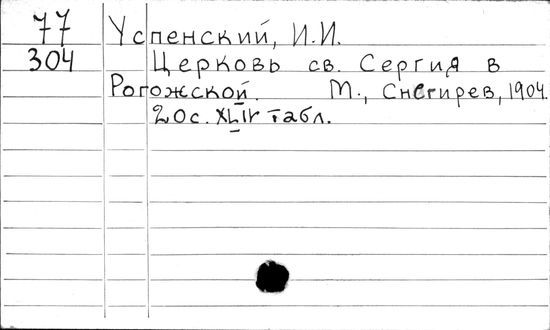 77 Успенский, И.И.
304 Церковь св. Сергия в
Рогожской. М., Снегирев, 1904.
20с. XLIV табл.